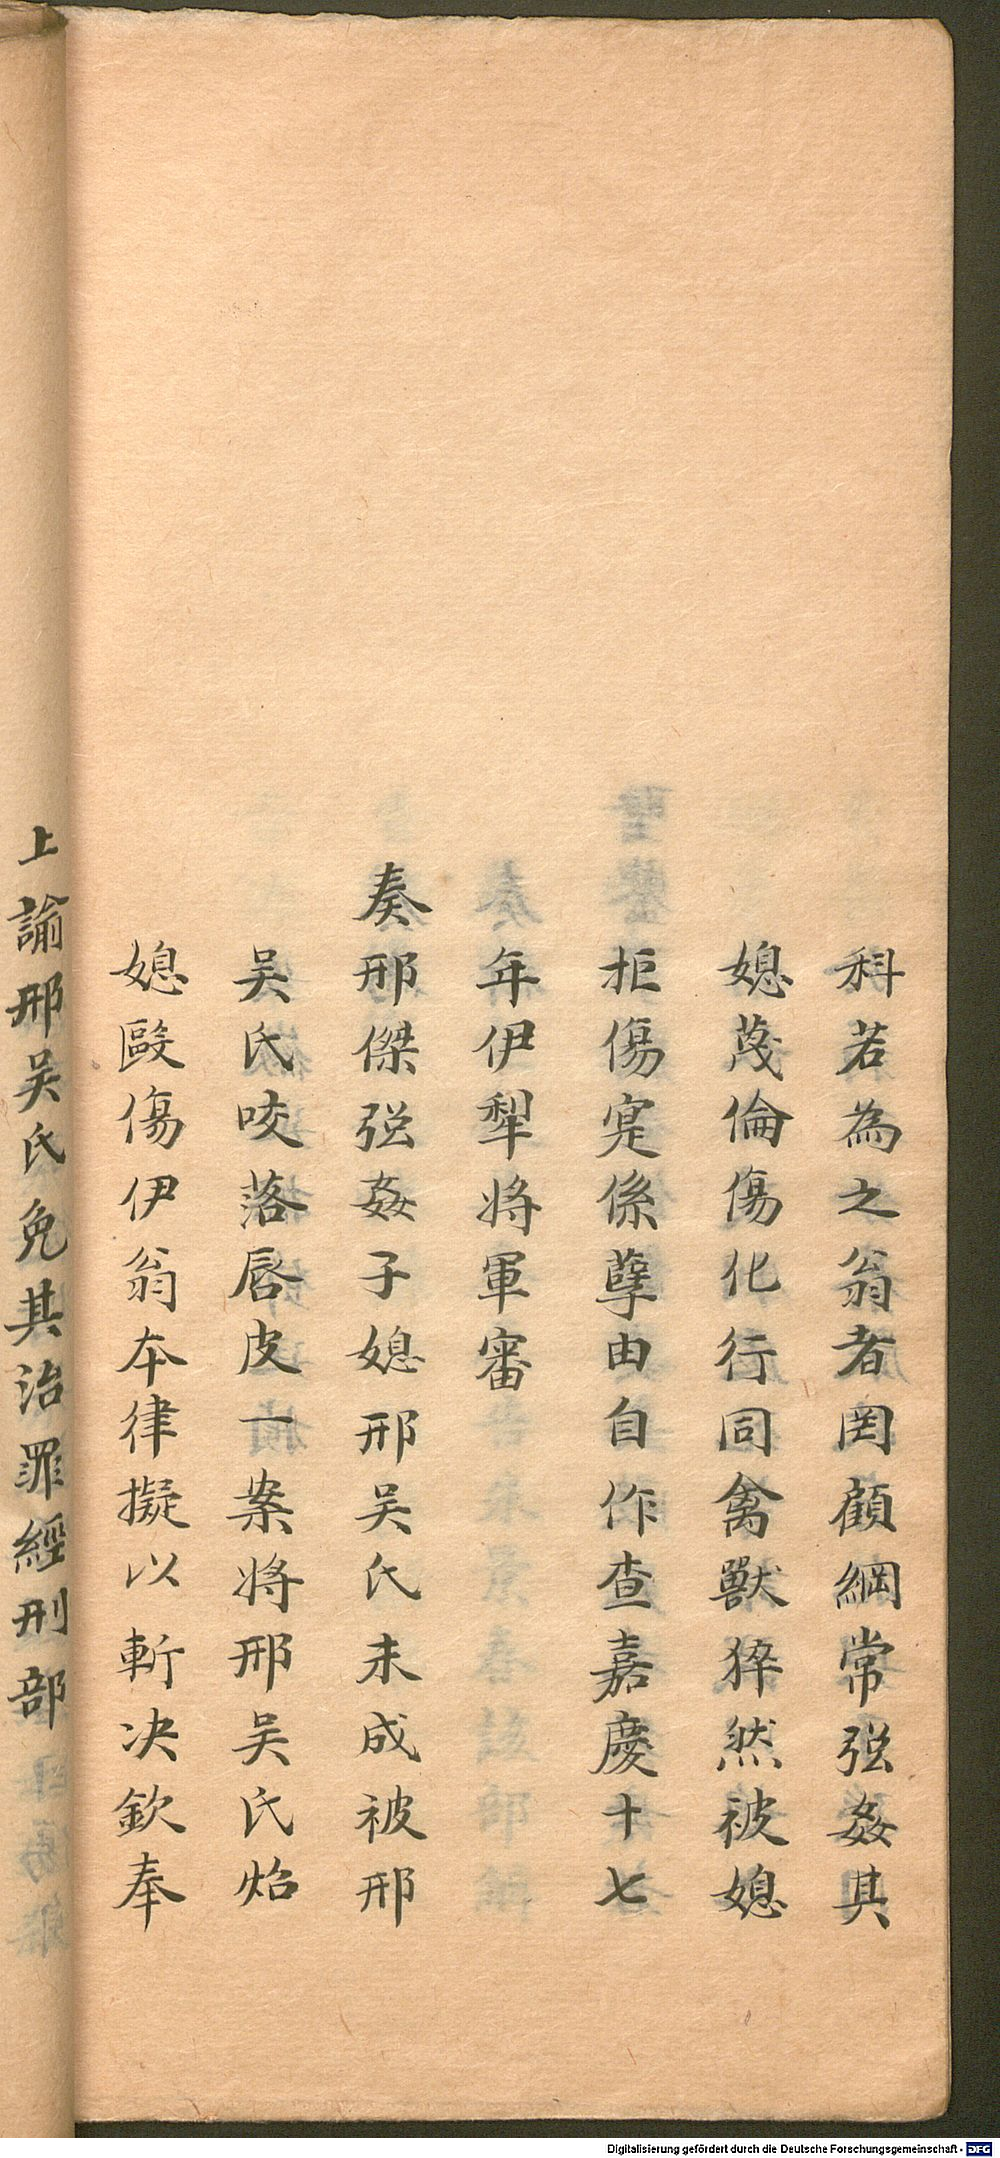 科若為之翁者罔顧綱常强姦其
媳蔑倫傷化行同禽獸猝然被媳
拒傷寔係孽由自作查嘉慶十七
年伊犁將軍審
奏邢傑强姦子媳邢吴氏未成被邢
吴氏咬落唇皮一案將邢吴氏炤
媳毆傷伊翁本律擬以斬决欽奉
上諭邢吴氏免其治罪經刑部
Digitalisierung gefördert durch die Deutsche Forschungsgemeinschaft - DFG